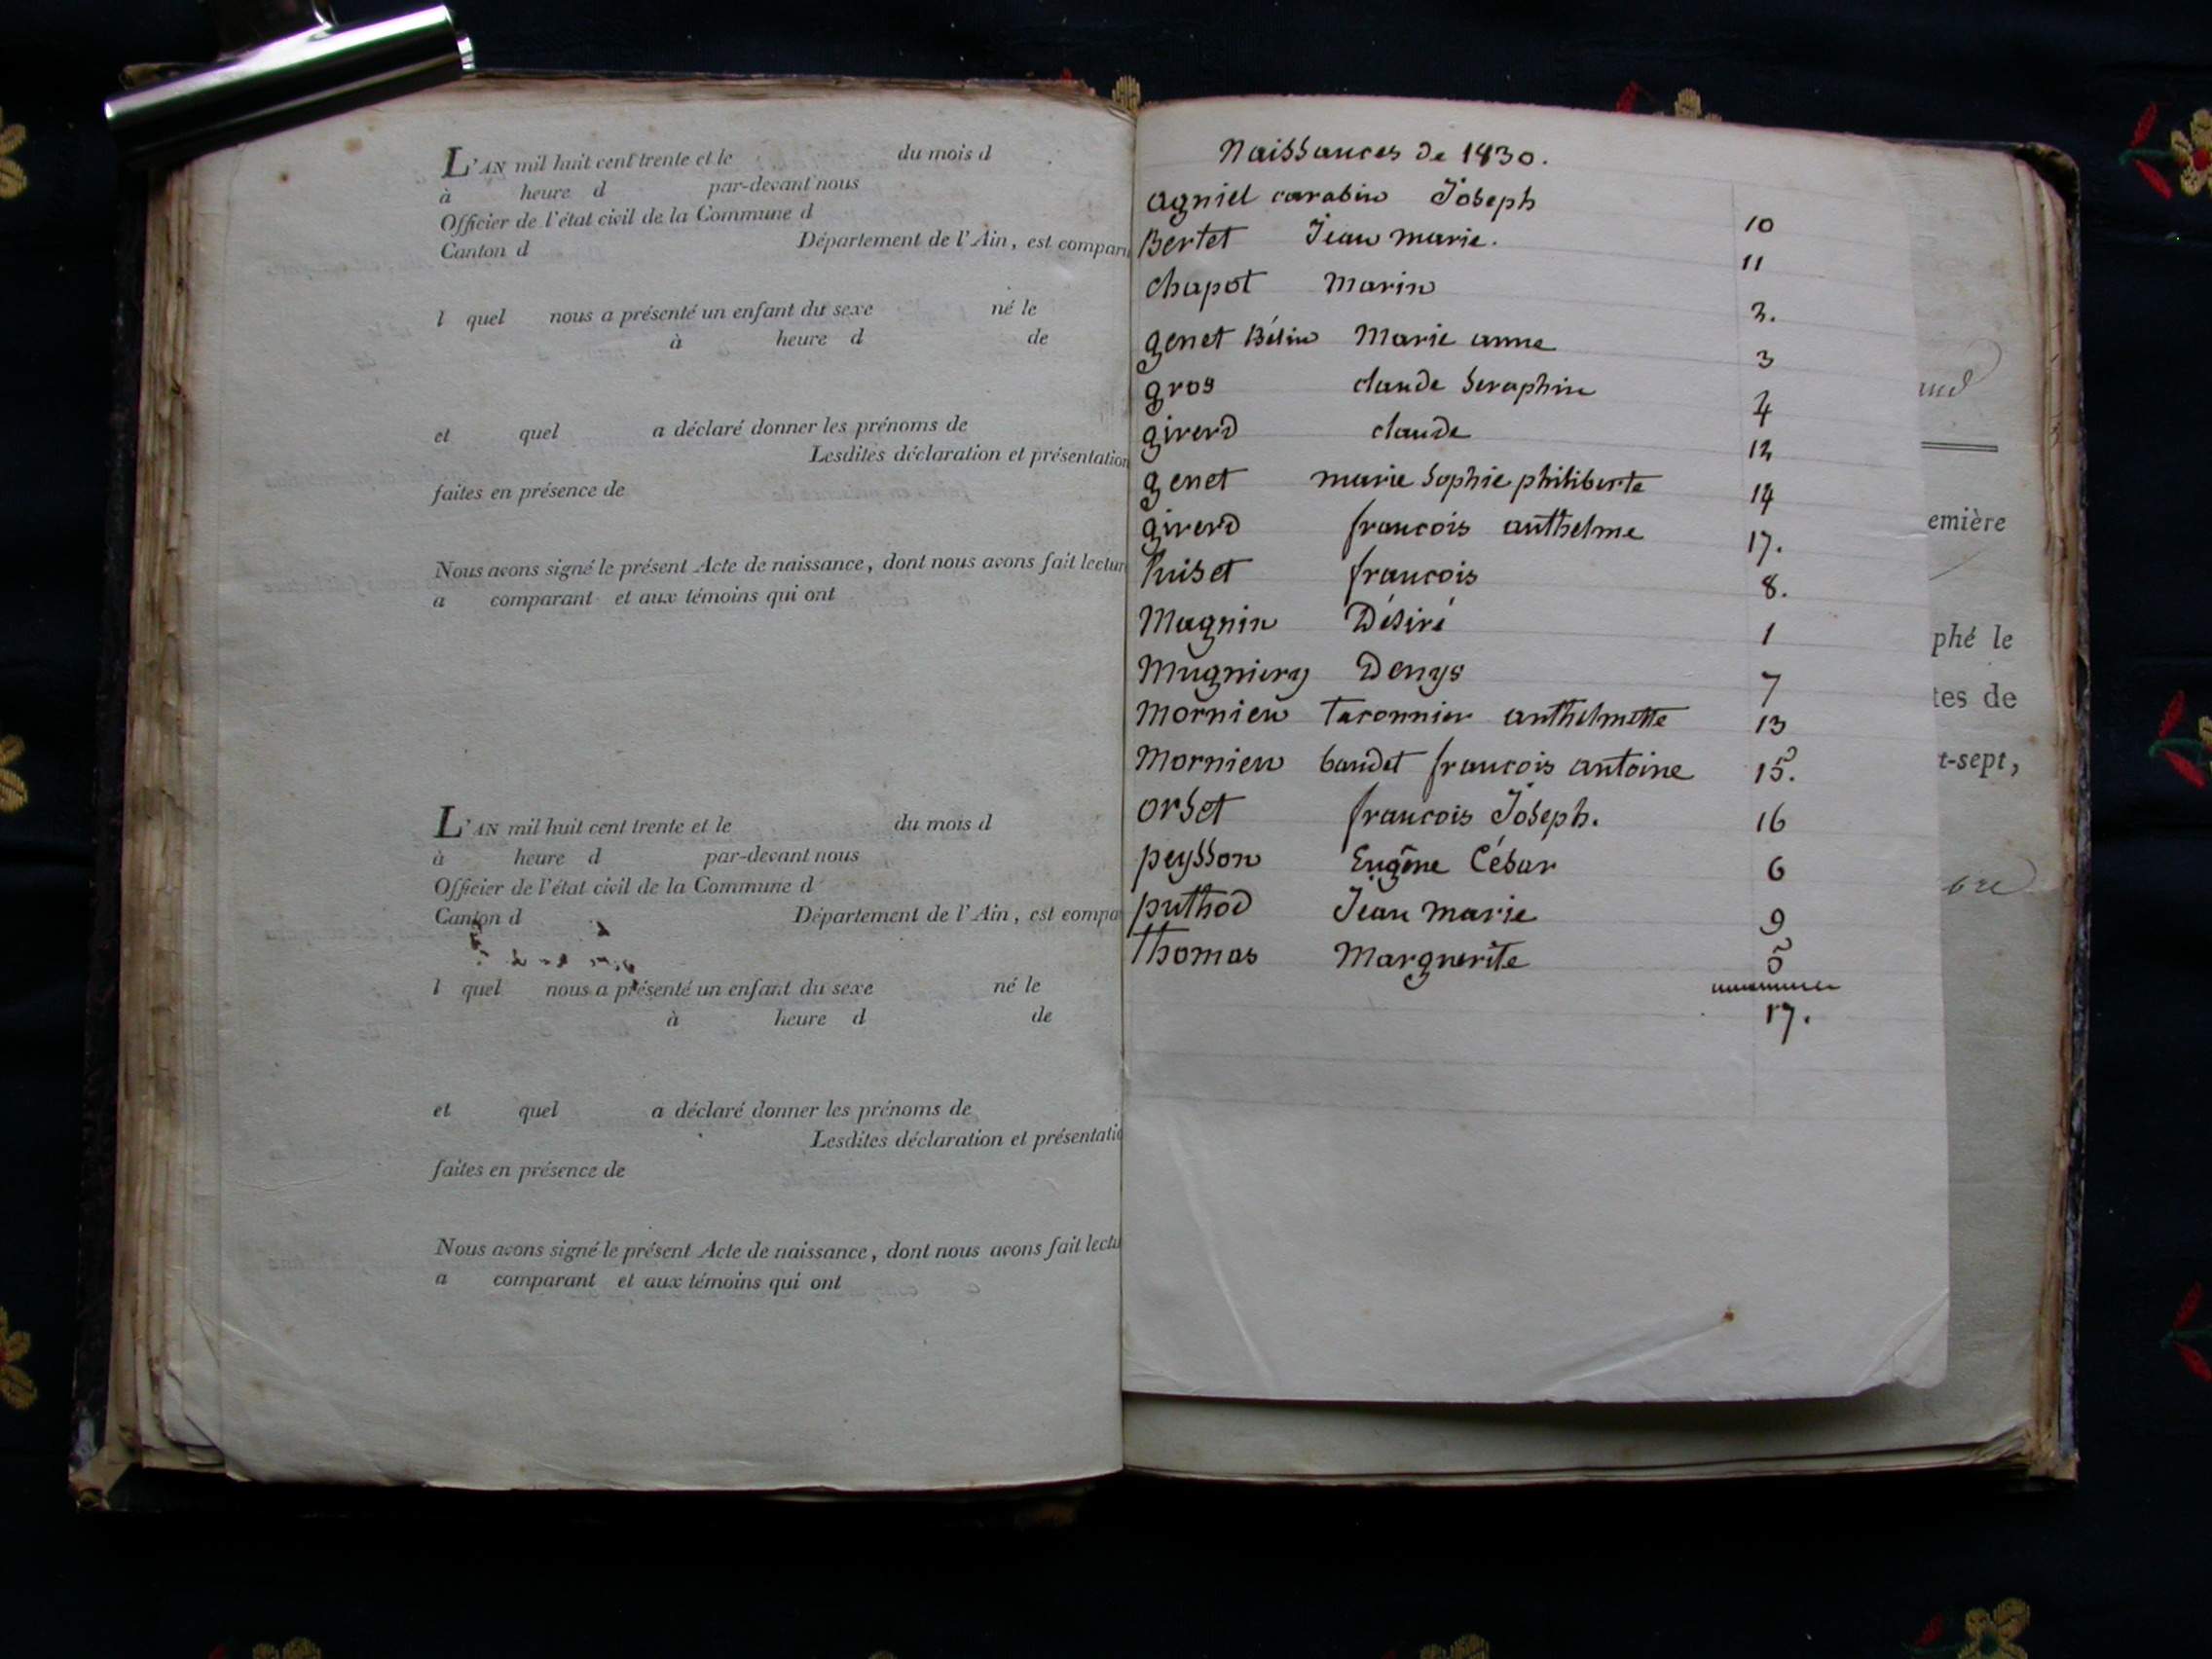 L'AN mil huit cent trente et le du mois d
à heure d par-devant nous
Officier de l'état civil de la Commune d
Canton d Département de l'Ain, est comparu
l quel nous a présenté un enfant du sexe né le
à heure d de
et quel a déclaré donner les prénoms de
Lesdites déclaration et présentation
faites en présence de
Nous avons signé le présent Acte de naissance, dont nous avons fait lectur
a comparant et aux témoins qui ont
L'AN mil huit cent trente et le du mois d
à heure d par-devant nous
Officier de l'état civil de la Commune d
Canton d Département de l'Ain, est compa
l quel nous a présenté un enfant du sexe né le
à heure d de
et quel a déclaré donner les prénoms de
Lesdites déclaration et présentatio
faites en présence de
Nous avons signé le présent Acte de naissance, dont nous avons fait lectu
a comparant et aux témoins qui ont
Naissances de 1830.
agniel carabin Joseph 10
Bertet Jean marie. 11
chapot Marin 2.
genet Bélin Marie anne 3
gros claude Seraphin 4
girerd claude 12
genet marie Sophie philiberte 14
girerd francois anthelme 17.
huiset francois 8.
Magnin Désiré 1
Mugniery Denys 7
Mornieu Taconnier anthelmette 13
Mornieu baudet francois antoine 15.
orset francois Joseph. 16
peysson Eugène César 6
puthod Jean marie 9
Thomas Marguerite 5
17.
emière
phé le
tes de
t-sept,